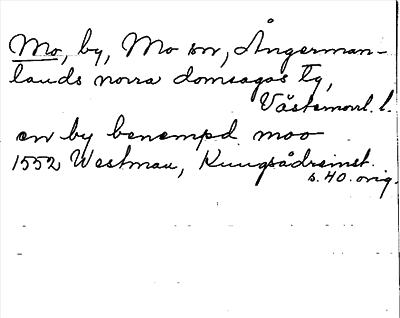 Mo, by, Mo sn, Ångerman-
lands norra domsagas tg,
Västernorrl. l.
en by benempd moo
1552 Westman, Kungsådreinst.
s. 40. orig.